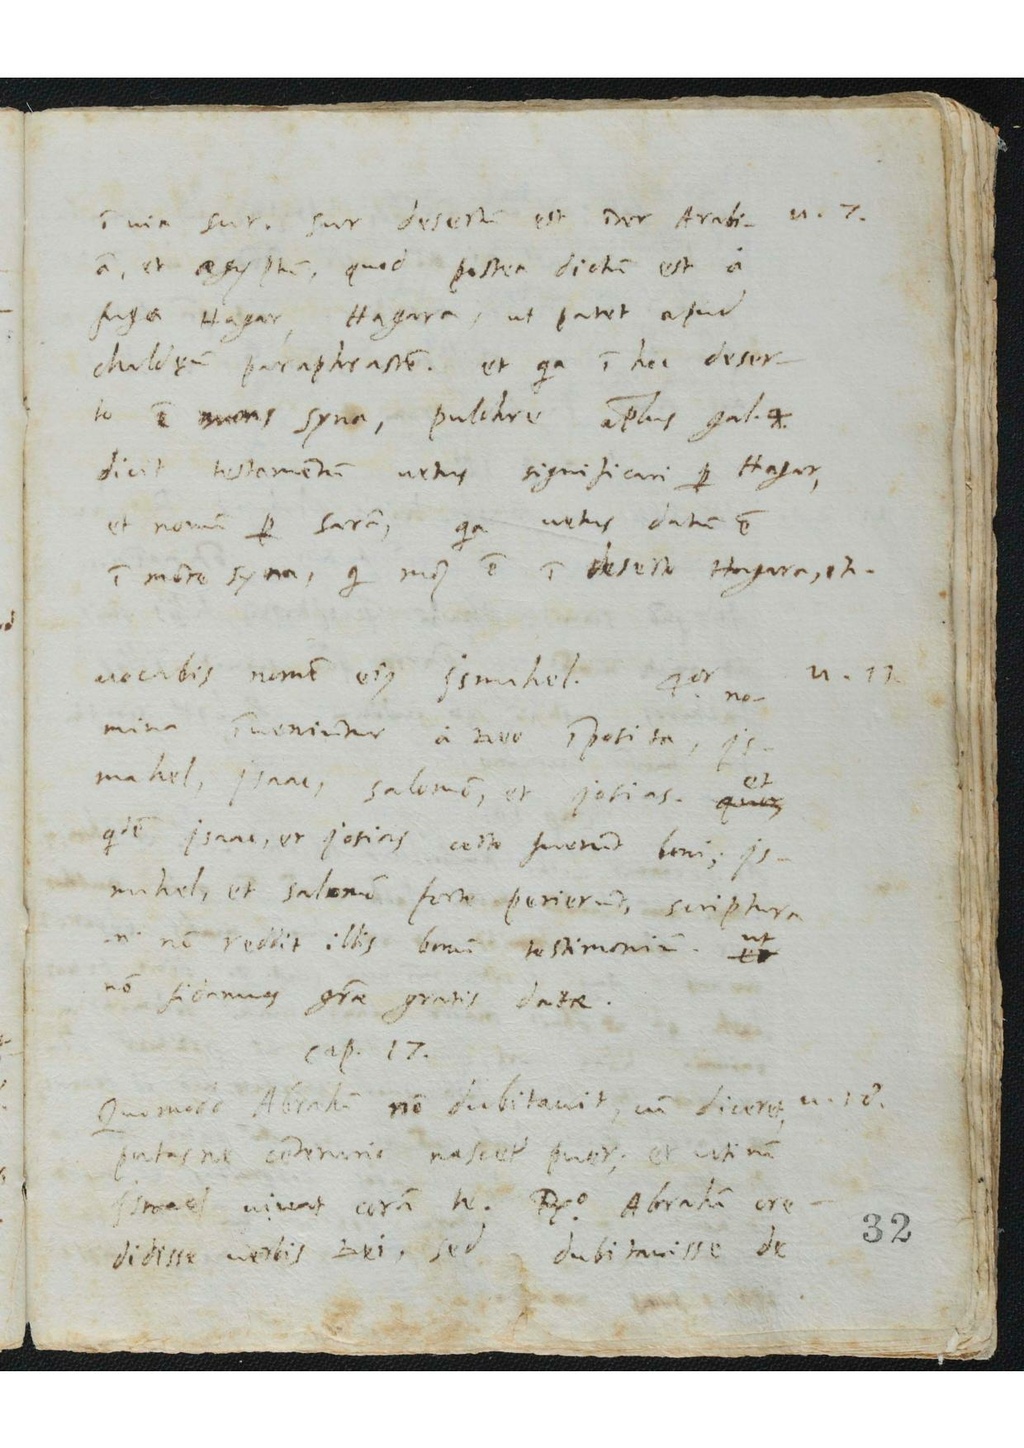 ī uia Sur. Sur desertū est īter Arabi- u. 7.
ā, et ægyptū, quod postea dictū est à
fuga Hagar, Hagara, ut patet apud
chaldęū paraphrastē. et qa ī hoc deser-
to ē mons Syna, pulchre aplus gal. 4.
dicit testamētū uetus significari ꝑ Hagar,
et nouū ꝑ Sarā, qa uetus datū ē
ī mōte Syna, q ē ī deserto Hagara, et.
uocabis nomē eiꝯ Jsmahel. u. 11.
4or no-
mina īueniūtur à Deo īposita, Js-
mahel, Jsaac, Salomō, et Josias. et
qdē Jsaac, et Josias certe fuerūt boni; Js-
mahel, et Salomō forte perierūt, scriptura
n̄ nō reddit illis bonū testimoniū. ut
nō fidamus grāe gratis datæ.
cap. 17.
Quomodo Abrahā nō dubitauit, cū diceret, u. 18.
putasne cētenario nascet puer; et utinā
Jsmael uiuat corā te. Rx.o Abrahā cre-
didisse uerbis Dei, sed dubitauisse de
32